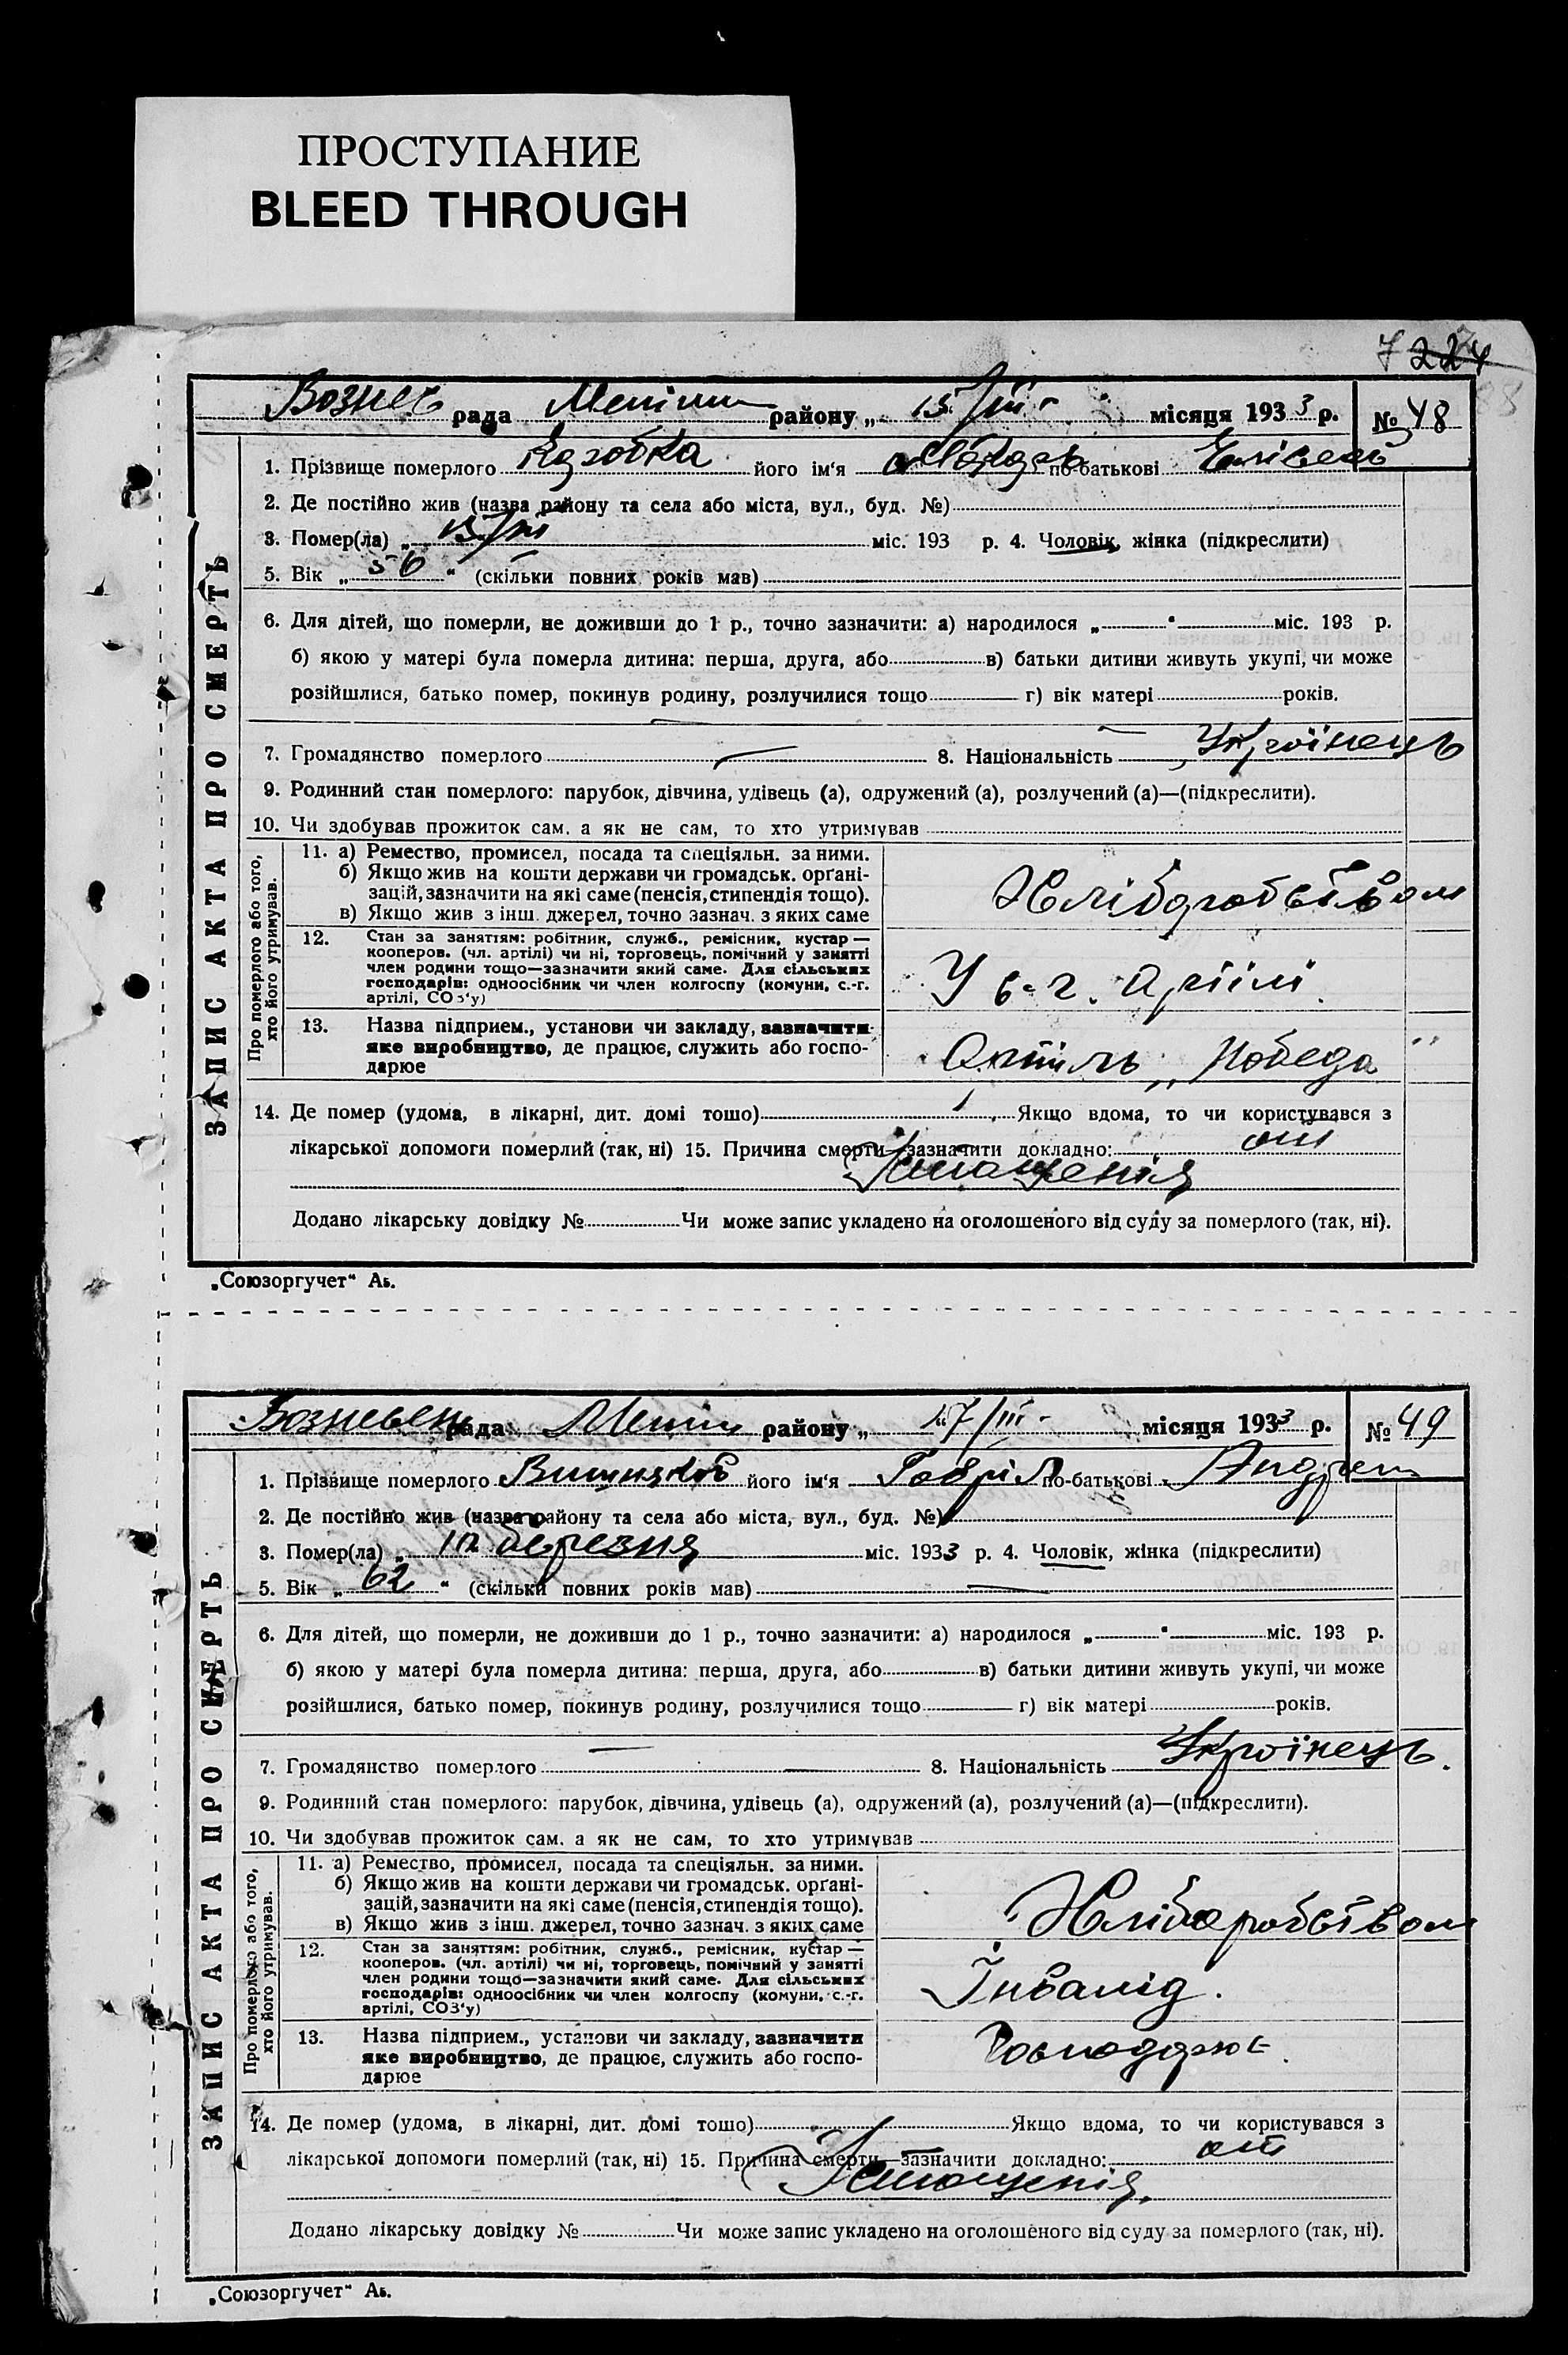 ПРОСТУПАНИЕ
BLEED THROUGH
7 224
рада районy „ 15/III - місяця 1933 р. № 48
1. Прізвище померлого його ім'я по-батькові
2. Де постійно жив (назва району та села або міста, вул., буд. №)
3. Помер(ла) „ міс. 193 р. 4. Чоловік, жінка (підкреслити)
5. Вік „ 56 “ (скільки повних років мав)
6. Для дітей, що померли, не доживши до 1 р., точно зазначити: а) народилося „ “ міс. 193 р.
б) якою у матері була померла дитина: перша, друга, або в) батьки дитини живуть укупі, чи може
розійшлися, батько помер, покинув родину, розлучилися тощо г) вік матері років.
7. Громадянство померлого 8. Національність Українець
9. Родинний стан померлого: парубок, дівчина, удівець (а), одружений (а), розлучений (а)—(підкреслити).
10. Чи здобував прожиток сам, а як не сам, то хто утримував
Про померлого або того,
хто його утримував.
11. а) Ремество, промисел, посада та спеціяльн. за ними.
б) Якщо жив на кошти держави чи громадськ. орґані-
зацій, зазначити на які саме (пенсія, стипендія тощо).
в) Якщо жив з інш. джерел, точно зазнач. з яких саме
Хліборобством
12. Стан за заняттям: робітник, служб., ремісник, кустар—
кооперов. (чл. артілі) чи ні, торговець, помічний у занятті
член родини тощо—зазначити який саме. Для сільських
господарів: одноосібник чи член колгоспу (комуни, с.-г.
артілі, СОЗ'у)
У с-г. артілі
13. Назва підприєм., установи чи закладу, зазначити
яке виробництво, де працює, служить або госпо-
дарює
Артіль „Победа“
14. Де помер (удома, в лікарні, дит. домі тощо) Якщо вдома, то чи користувався з
лікарської допомоги померлий (так, ні) 15. Причина смерти—зазначити докладно: от
Істощенія
Додано лікарську довідку № Чи може запис укладено на оголошеного від суду за померлого (так, ні).
ЗАПИС АКТА ПРО СМЕРТЬ
„Союзоргучет“ Аь.
рада району „ 17/III - місяця 1933 р. № 49
1. Прізвище померлого його ім'я Гавріл по-батькові
2. Де постійно жив (назва району та села або міста, вул., буд. №)
3. Помер(ла) „ березня міс. 1933 р. 4. Чоловік, жінка (підкреслити)
5. Вік „ 62 “ (скільки повних років мав)
6. Для дітей, що померли, не доживши до 1 р., точно зазначити: а) народилося „ “ міс. 193 р.
б) якою у матері була померла дитина: перша, друга, або в) батьки дитини живуть укупі, чи може
розійшлися, батько помер, покинув родину, розлучилися тощо г) вік матері років.
7. Громадянство померлого 8. Національність Українець.
9. Родинний стан померлого: парубок, дівчина, удівець (а), одружений (а), розлучений (а)—(підкреслити).
10. Чи здобував прожиток сам, а як не сам, то хто утримував
Про померлого або того,
хто його утримував.
11. а) Ремество, промисел, посада та спеціяльн. за ними.
б) Якщо жив на кошти держави чи громадськ. орґані-
зацій, зазначити на які саме (пенсія, стипендія тощо).
в) Якщо жив з інш. джерел, точно зазнач. з яких саме
Хліборобством
12. Стан за заняттям: робітник, служб., ремісник, кустар—
кооперов. (чл. артілі) чи ні, торговець, помічний у занятті
член родини тощо—зазначити який саме. Для сільських
господарів: одноосібник чи член колгоспу (комуни, с.-г.
артілі, СОЗ'у)
Інвалід.
13. Назва підприєм., установи чи закладу, зазначити
яке виробництво, де працює, служить або госпо-
дарює
Господарює.
14. Де помер (удома, в лікарні, дит. домі тощо) Якщо вдома, то чи користувався з
лікарської допомоги померлий (так, ні) 15. Причина смерти—зазначити докладно: от
Істощенія.
Додано лікарську довідку № Чи може запис укладено на оголошеного від суду за померлого (так, ні).
ЗАПИС АКТА ПРО СМЕРТЬ
„Союзоргучет“ Аь.